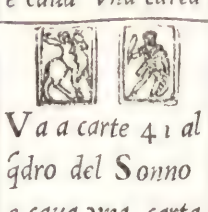 e caua vna carta
Va a carte 41 al
q̃dro del Sonno
e caua vna carta